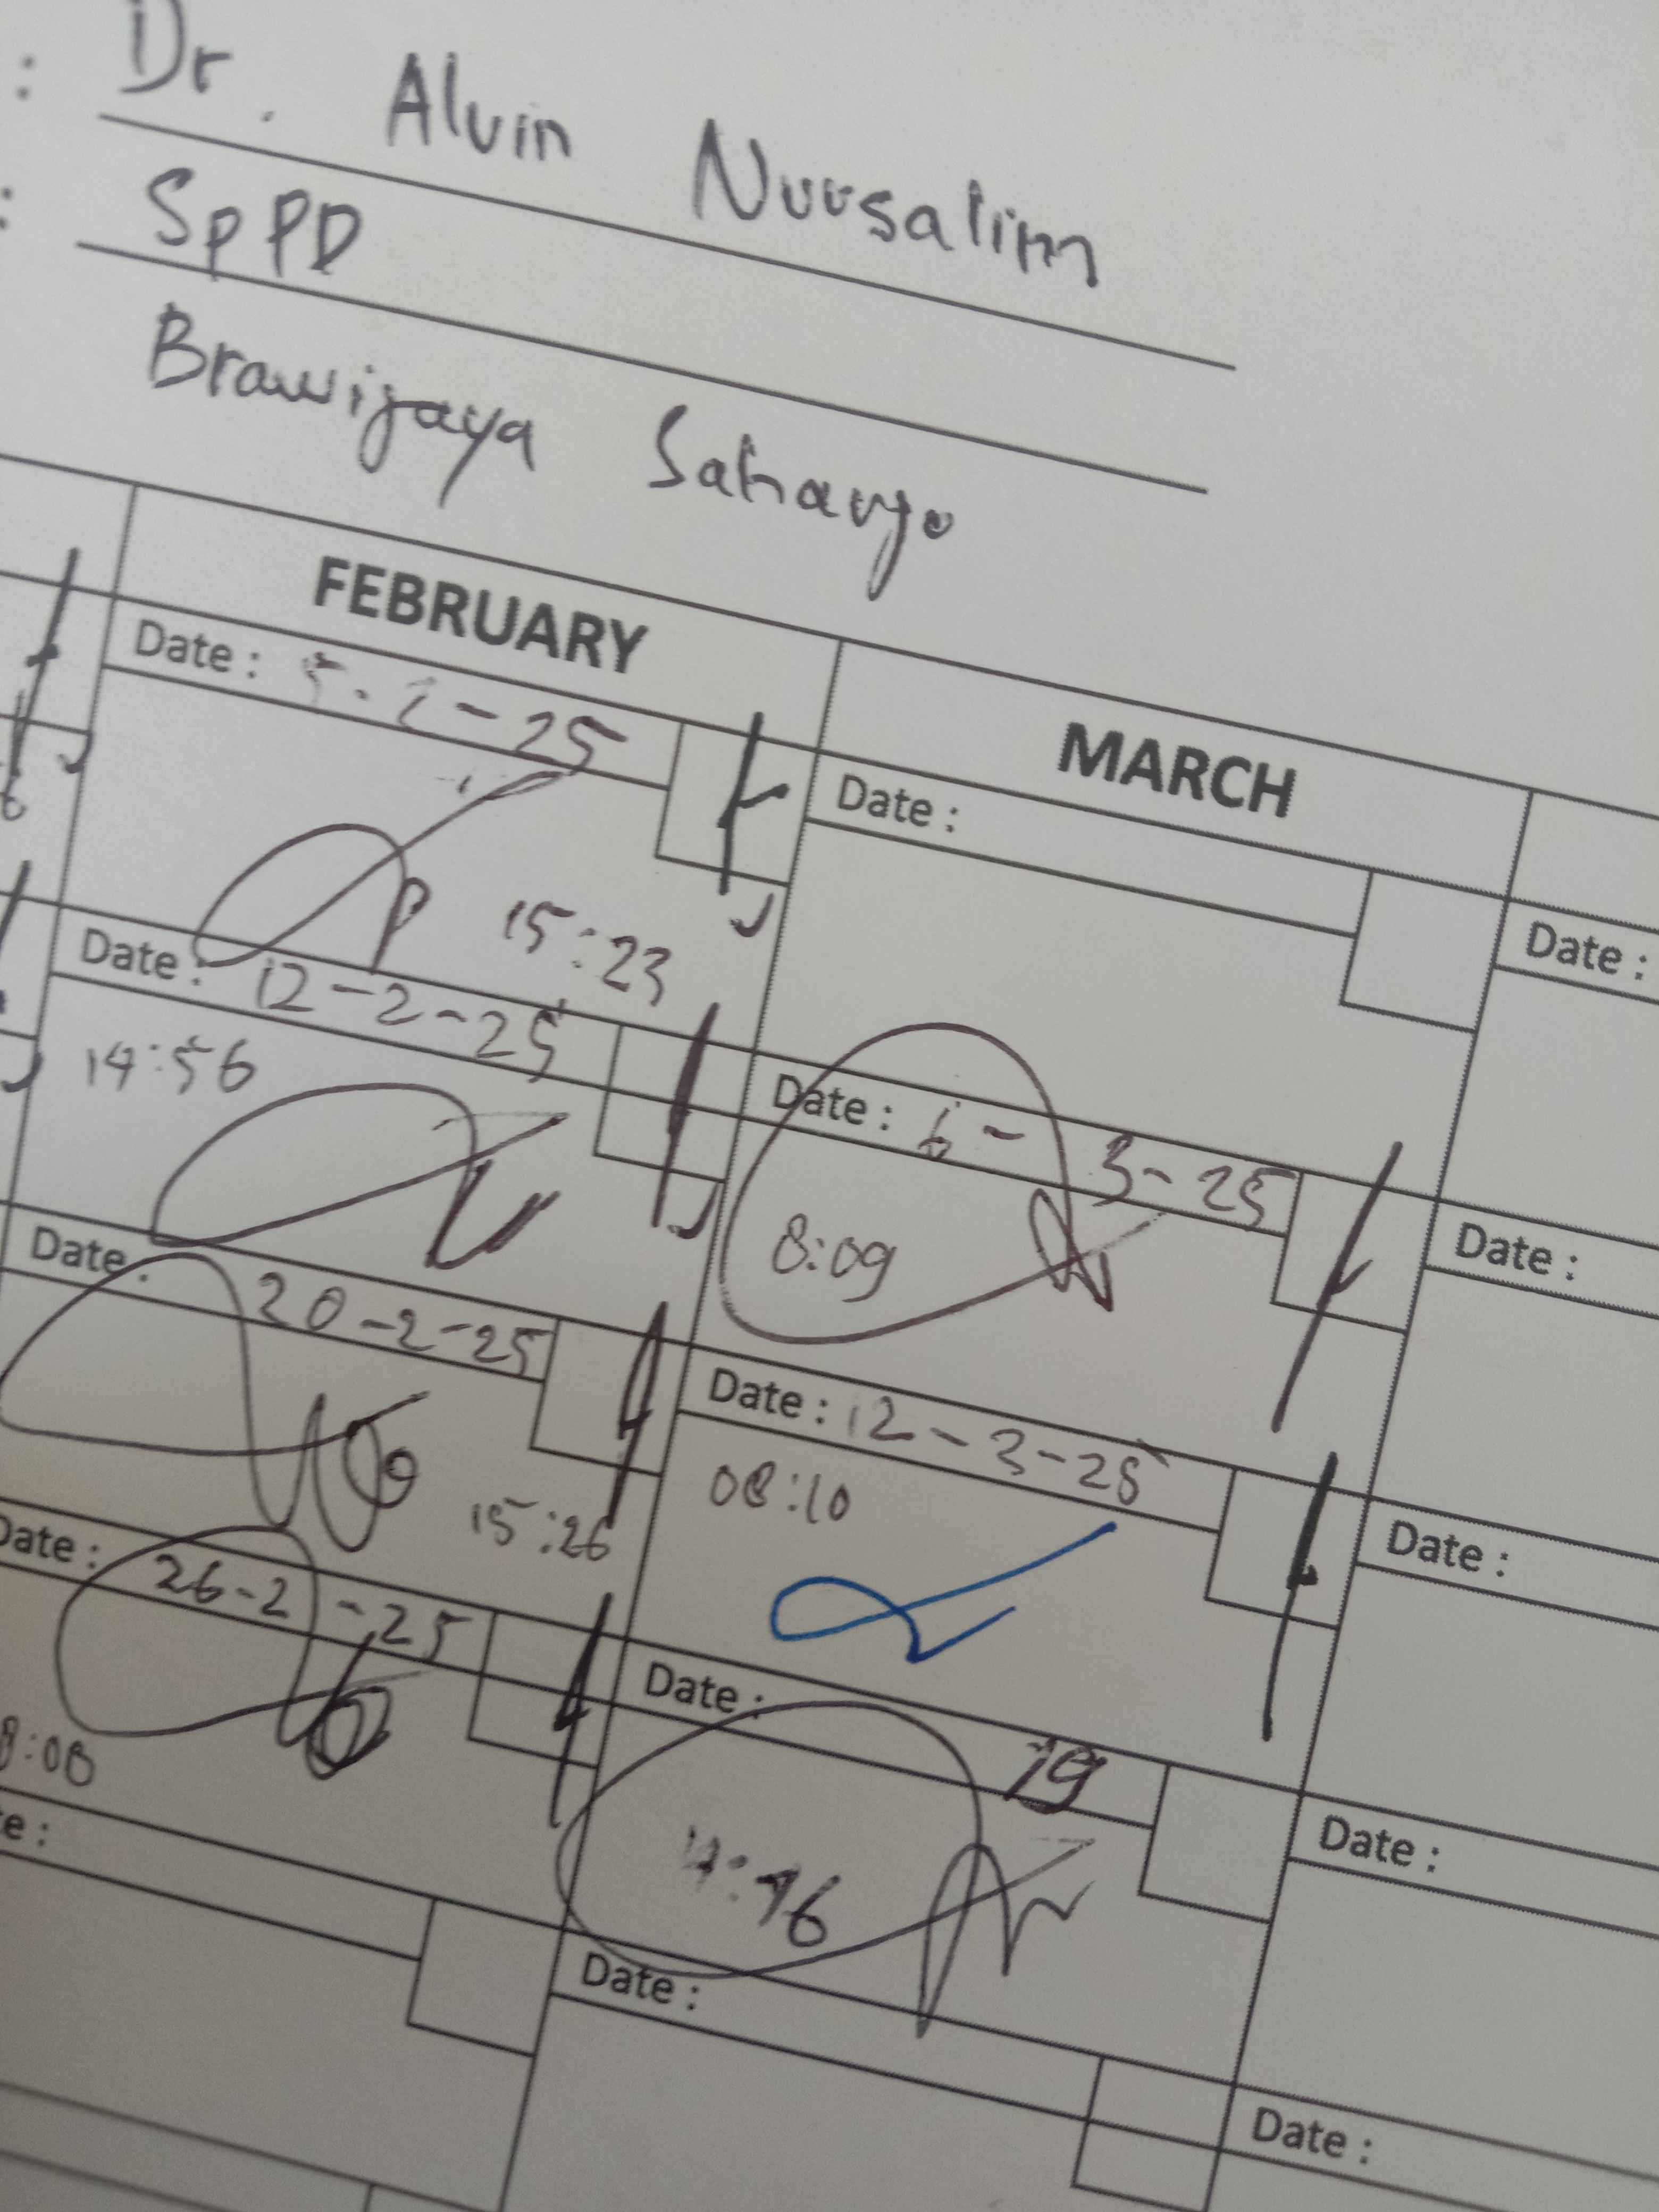 : Dr. Alvin Nursalim
: SpPD
Brawijaya Saharjo
FEBRUARY
Date : 5-2-25
15:23
Date : 12-2-25
14:56
Date : 20-2-25
15:26
Date : 26-2-25
8:08
te :
MARCH
Date :
Date : 6-3-25
8:09
Date : 12-3-25
08:10
Date : 19
Date :
Date :
Date :
Date :
Date :
Date :